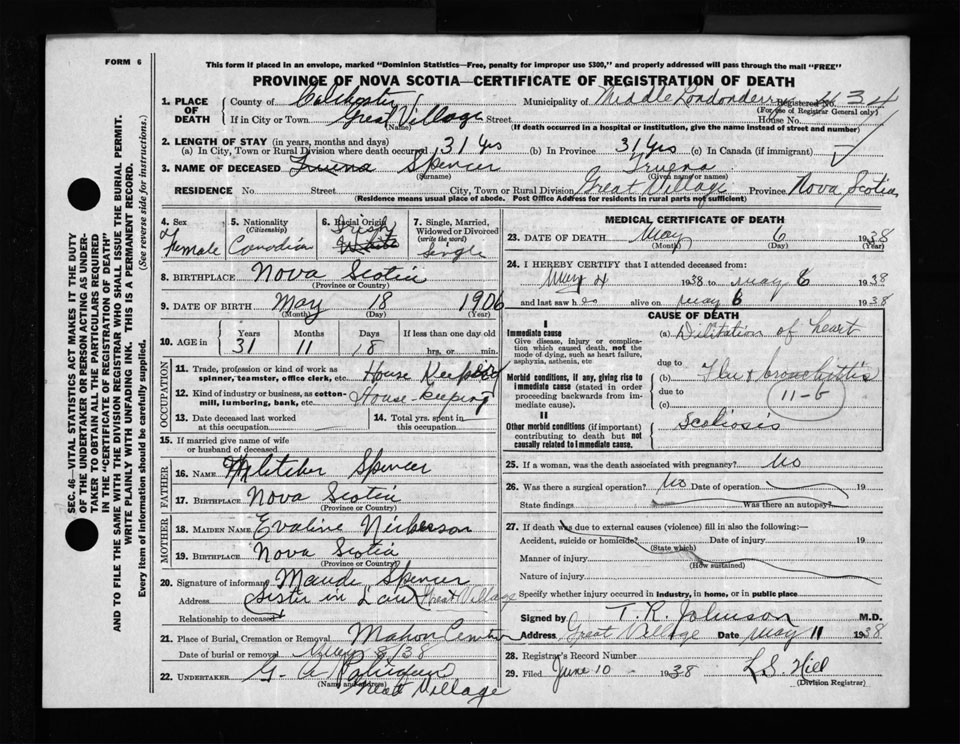 FORM 6
This form if placed in an envelope, marked "Dominion Statistics—Free, penalty for improper use $300," and properly addressed will pass through the mail "FREE"
PROVINCE OF NOVA SCOTIA—CERTIFICATE OF REGISTRATION OF DEATH
1. PLACE OF DEATH County of Colchester Municipality of Middle Londonderry Registered No. 434
(For use of Registrar General only)
If in City or Town Great Village Street House No.
(Name) (If death occurred in a hospital or institution, give the name instead of street and number)
2. LENGTH OF STAY (in years, months and days)
(a) In City, Town or Rural Division where death occurred 31 Yrs (b) In Province 31 Yrs (c) In Canada (if immigrant)
3. NAME OF DECEASED Spencer Truena
(Surname) (Given name or names)
RESIDENCE No. Street City, Town or Rural Division Great Village Province Nova Scotia
(Residence means usual place of abode. Post Office Address for residents in rural parts not sufficient)
4. Sex Female
5. Nationality (Citizenship) Canadian
6. Racial Origin Irish White
7. Single, Married, Widowed or Divorced (write the word) Single
8. BIRTHPLACE Nova Scotia
(Province or Country)
9. DATE OF BIRTH May 18 1906
(Month) (Day) (Year)
10. AGE in Years Months Days If less than one day old
31 11 18 hrs. or min.
OCCUPATION
11. Trade, profession or kind of work as spinner, teamster, office clerk, etc. House Keeping
12. Kind of industry or business, as cotton-mill, lumbering, bank, etc. House keeping
13. Date deceased last worked at this occupation
14. Total yrs. spent in this occupation
15. If married give name of wife or husband of deceased
FATHER
16. NAME Fletcher Spencer
17. BIRTHPLACE Nova Scotia
(Province or Country)
MOTHER
18. MAIDEN NAME Evaline
19. BIRTHPLACE Nova Scotia
(Province or Country)
20. Signature of informant Maude Spencer
Address Great Village
Relationship to deceased Sister in Law
21. Place of Burial, Cremation or Removal Mahon
Date of burial or removal May 8/38
22. UNDERTAKER G.
(Name and address)
Great Village
MEDICAL CERTIFICATE OF DEATH
23. DATE OF DEATH May 6 1938
(Month) (Day) (Year)
24. I HEREBY CERTIFY that I attended deceased from:
May 4 1938 to May 6 1938
and last saw h es alive on May 6 1938
CAUSE OF DEATH
I
Immediate cause
Give disease, injury or complication which caused death, not the mode of dying, such as heart failure, asphyxia, asthenia, etc
(a) Dilitation of heart
due to
Morbid conditions, if any, giving rise to immediate cause (stated in order proceeding backwards from immediate cause).
(b) Flu & bronchitis
due to
(c) 11-G
II
Other morbid conditions (if important) contributing to death but not causally related to immediate cause.
Scoliosis
25. If a woman, was the death associated with pregnancy? No
26. Was there a surgical operation? No Date of operation 19
State findings Was there an autopsy?
27. If death was due to external causes (violence) fill in also the following:—
Accident, suicide or homicide? Date of injury 19
(State which)
Manner of injury
(How sustained)
Nature of injury
Specify whether injury occurred in industry, in home, or in public place
Signed by T. R. Johnson M.D.
Address Great Village Date May 11 1938
28. Registrar's Record Number
29. Filed June 10 - 1938 L.S. Hill
(Division Registrar)
SEC. 46—VITAL STATISTICS ACT MAKES IT THE DUTY OF THE UNDERTAKER OR PERSON ACTING AS UNDERTAKER TO OBTAIN ALL THE PARTICULARS REQUIRED IN THE "CERTIFICATE OF REGISTRATION OF DEATH" AND TO FILE THE SAME WITH THE DIVISION REGISTRAR WHO SHALL ISSUE THE BURIAL PERMIT.
WRITE PLAINLY WITH UNFADING INK. THIS IS A PERMANENT RECORD.
Every item of information should be carefully supplied. (See reverse side for instructions.)